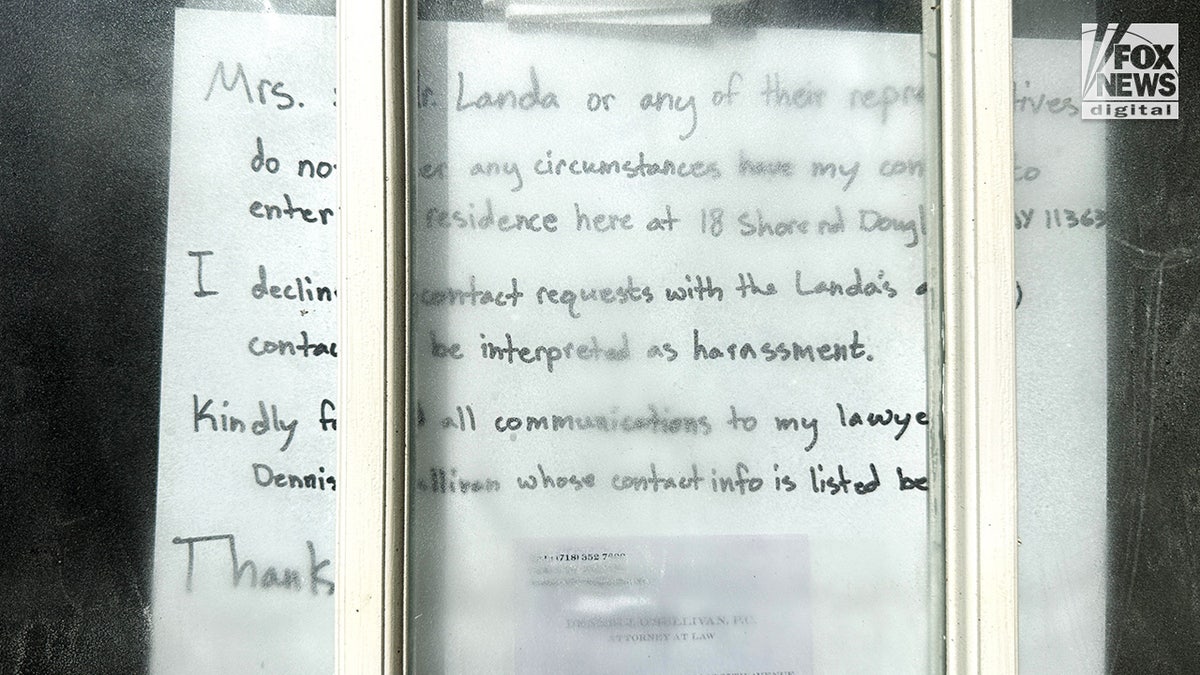 Mrs. Landa or any of their repre tives
do no er any circumstances have my con to
enter residence here at 18 Shore rd Dougl NY 11363
I declin contact requests with the Landa's a
contac be interpreted as harassment.
Kindly f all communications to my lawye
Dennis ullivan whose contact info is listed be
Thanks
(718) 352
DENNIS J. O'SULLIVAN, P.C.
ATTORNEY AT LAW
AVENUE
FOX
NEWS
digital